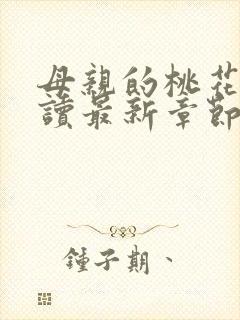 母親的桃花
讀最新章節
鍾子期、